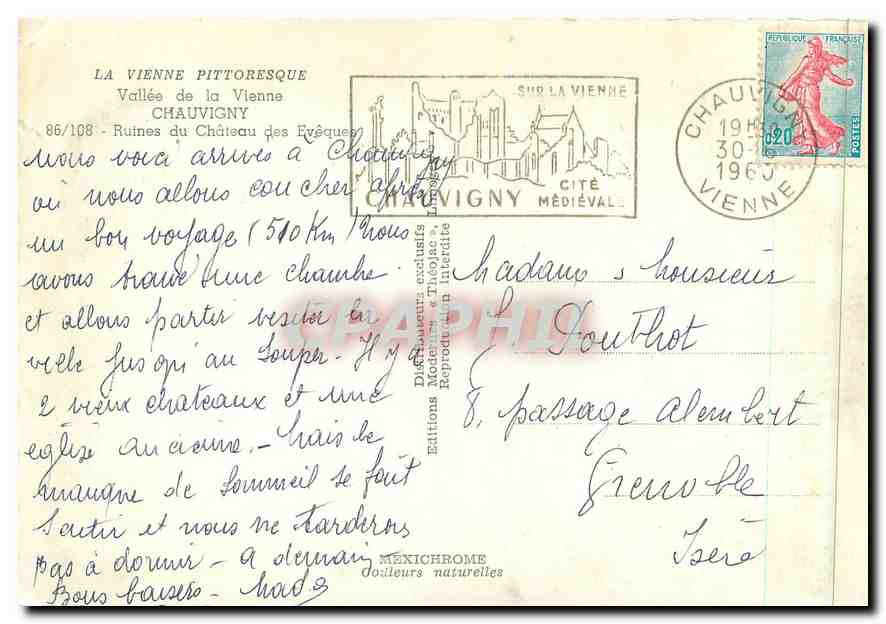 LA VIENNE PITTORESQUE
Vallée de la Vienne
CHAUVIGNY
86/108 - Ruines du Château des Evêques
Nous voici arrivés à Chauvigny
où nous allons coucher après
un bon voyage (510 Km) Nous
avons trouvé une chambre
et allons partir visiter la
ville jusqu'au souper - Il y a
2 vieux chateaux et une
église ancienne. - Mais le
manque de sommeil se fait
sentir et nous ne tarderons
pas à dormir - a demain
Bons baisers -
SUR LA VIENNE
CHAUVIGNY CITÉ MÉDIÉVALE
CHAUVIGNY
19H
30-
VIENNE
REPUBLIQUE FRANÇAISE
0,20
POSTES
Distributeurs exclusifs
Editions Modernes « Théojac », Limoges
Reproduction Interdite
Madame Monsieur
8, passage Alembert
Grenoble
Isère
MEXICHROME
Couleurs naturelles
CPAPHIL